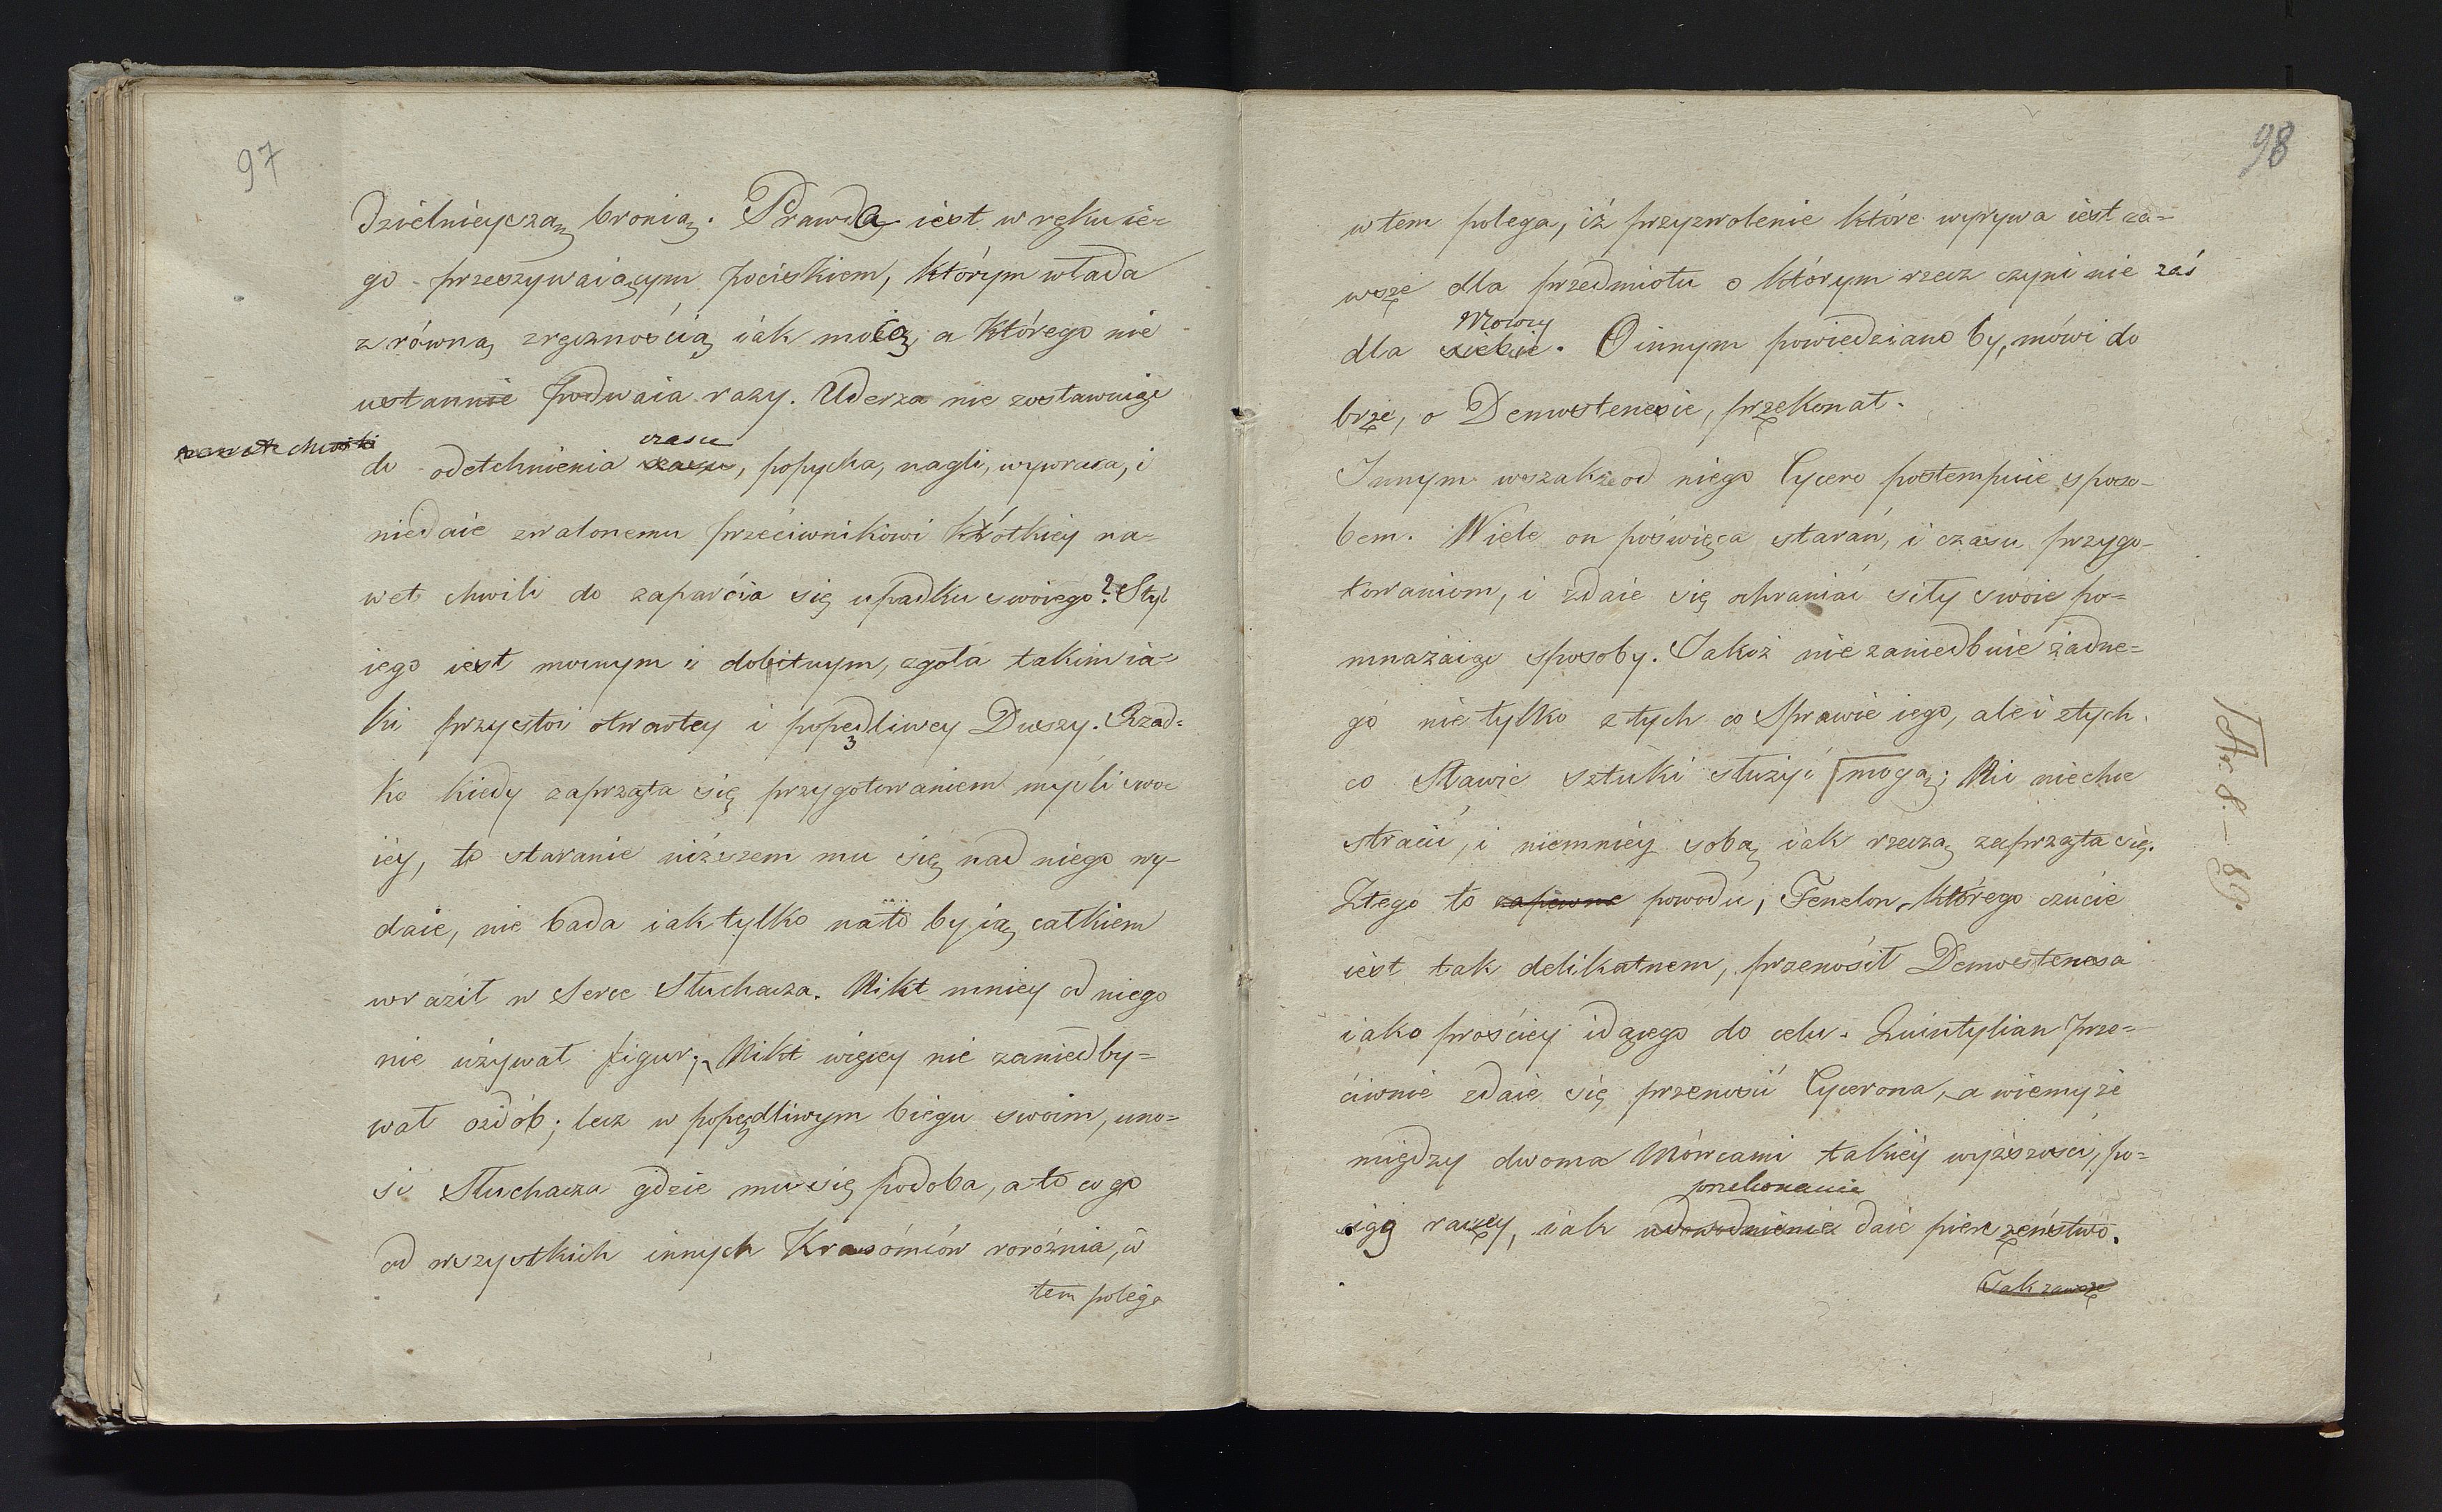 97
dzielnieyszą bronią. Prawda iest w ręku ie-
go przeszywaiącym pociskiem, którym włada
z równą zręcznością iak mocą, a którego nie
ustannie podwaia razy. Uderza nie zostawuiąc
do odetchnienia czasu, popycha, nagli, wywraca, i
niedaie zwalonemu przeciwnikowi krótkiey na=
wet chwili do zaparcia się upadku swoiego? Styl
iego iest mocnym i dobitnym, zgoła takim ia=
ki przystoi otwartey i popędliwey Duszy. Rzad=
ko kiedy zaprząta się przygotowaniem myśli swo
iey, to staranie niższem mu się nad niego wy-
daie, nie bada iak tylko na to by ią całkiem
wraził w Serce Słuchacza. Nikt mniey od niego
nie używał figur, Nikt więcey nie zaniedby=
wał ozdób; lecz w popędliwym biegu swoim, uno=
si Słuchacza gdzie mu się podoba, a to co go
od wszystkich innych Krasomców rożóżnia, w
tem polega
98
w tem polega, iż przyzwolenie które wyrywa iest za=
wsze dla przedmiotu o którym rzecz czyni nie zaś
Mowcy
dla siebie. O innym powiedziano by, mówi do
brze, o Demostenesie, przekonał.
Innym wszakże od niego Cycero postempuie sposo-
bem. Wiele on poświęca starań, i czasu przygo-
towaniom, i zdaie się ochraniać siły swoie po=
mnażaiąc sposoby. Jakoż nie zaniedbuie żadne=
go nie tylko z tych co Sprawie iego, ale i z tych
co Sławie sztuki służyć mogą; Nic niechce
stracić, i niemniey sobą iak rzeczą zaprząta się.
Ztego to zapewne powodu, Fenelon, którego czucie
iest tak delikatnem, przenosił Demostenesa
iako prościey idącego do celu. Quintylian prze=
ciwnie zdaie się przenosić Cycerona, a wiemy że
między dwoma Mówcami takiey wyższości, po=
przekonanie
ciąg raczey, iak udowodnienie daie pierszeństwo.
Tak zawsze
Ar. 8. — 89.